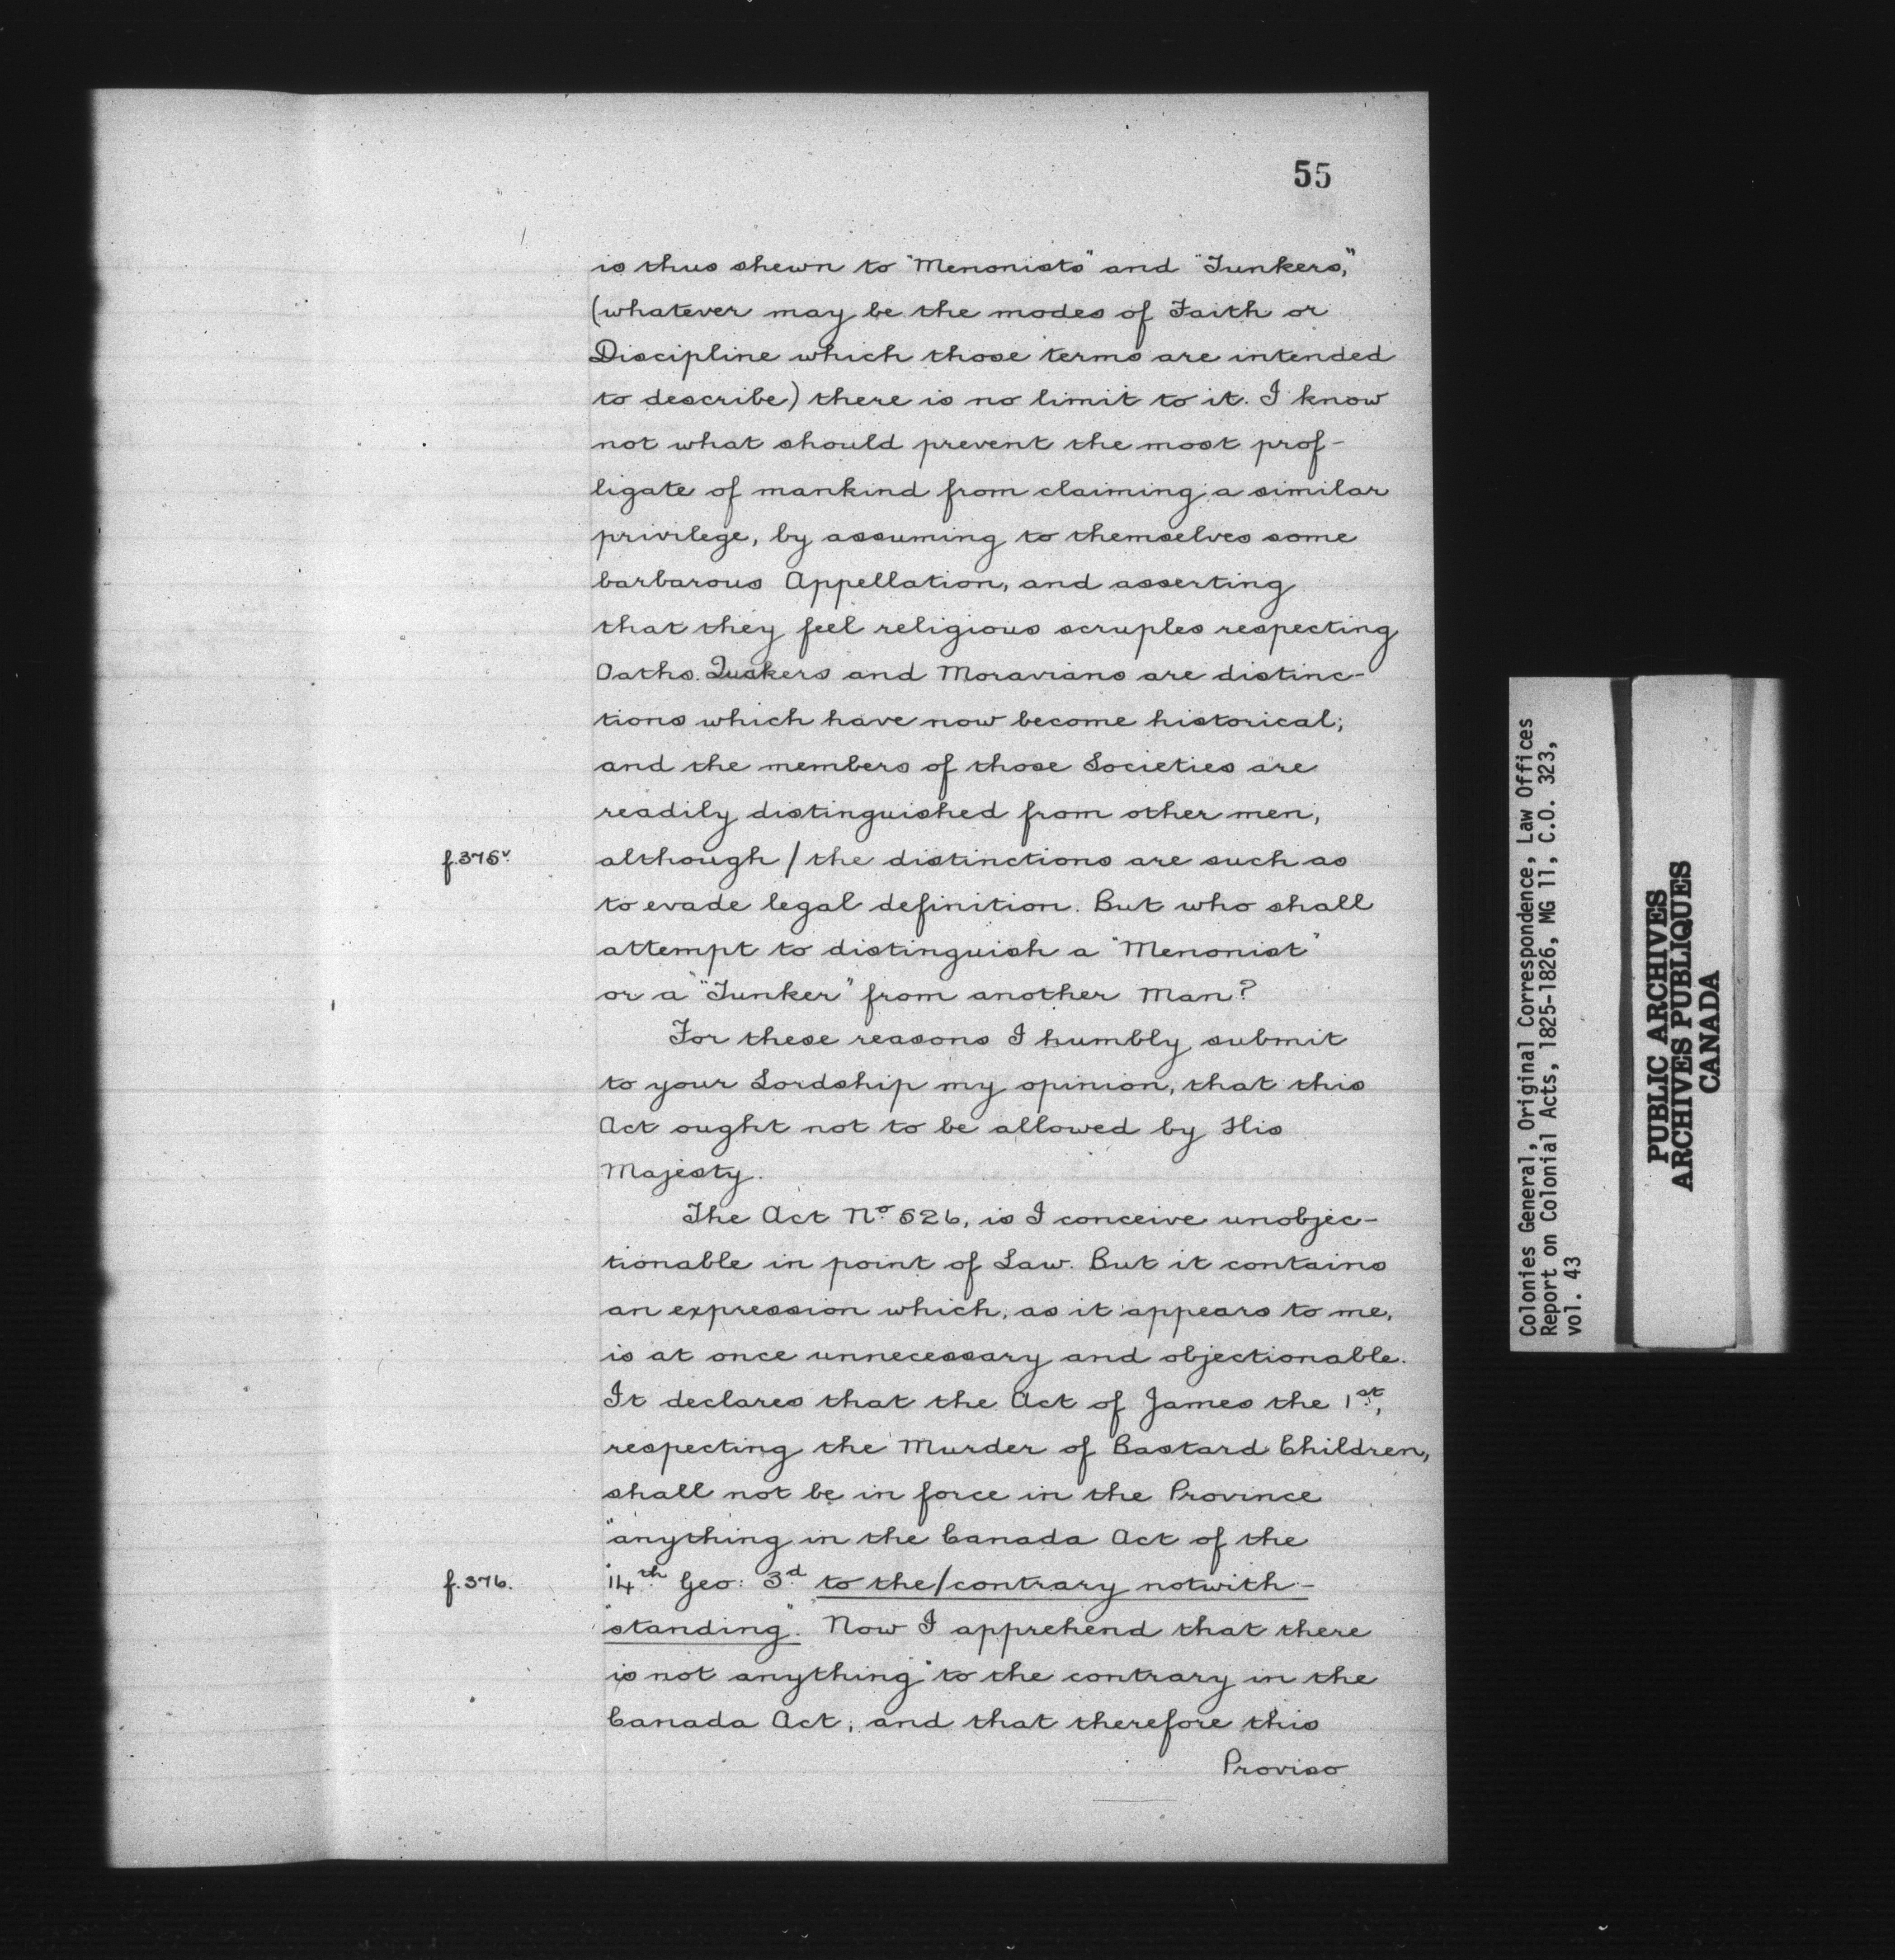 55
is thus shewn to "Menonists" and "Tunkers,"
(whatever may be the modes of Faith or
Discipline which those terms are intended
to describe) there is no limit to it. I know
not what should prevent the most prof-
ligate of mankind from claiming a similar
privilege, by assuming to themselves some
barbarous Appellation, and asserting
that they feel religious scruples respecting
Oaths. Quakers and Moravians are distinc-
tions which have now become historical;
and the members of those Societies are
readily distinguished from other men,
f.375v. although / the distinctions are such as
to evade legal definition. But who shall
attempt to distinguish a "Menonist"
or a "Tunker" from another Man?
For these reasons I humbly submit
to your Lordship my opinion, that this
Act ought not to be allowed by His
Majesty.
The Act No. 526, is I conceive unobjec-
tionable in point of Law. But it contains
an expression which, as it appears to me,
is at once unnecessary and objectionable.
It declares that the Act of James the 1st,
respecting the Murder of Bastard Children,
shall not be in force in the Province
"anything in the Canada Act of the
f.376. "14th Geo: 3d to the / contrary notwith-
"standing". Now I apprehend that there
is not anything "to the contrary in the
Canada Act, and that therefore this
Proviso
Colonies General, Original Correspondence, Law Offices
Report on Colonial Acts, 1825-1826, MG 11, C.O. 323,
vol. 43
PUBLIC ARCHIVES
ARCHIVES PUBLIQUES
CANADA